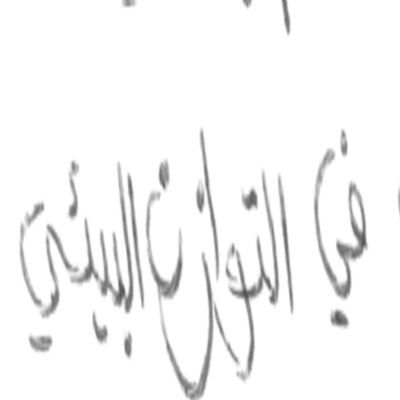 في التوازن البيئي